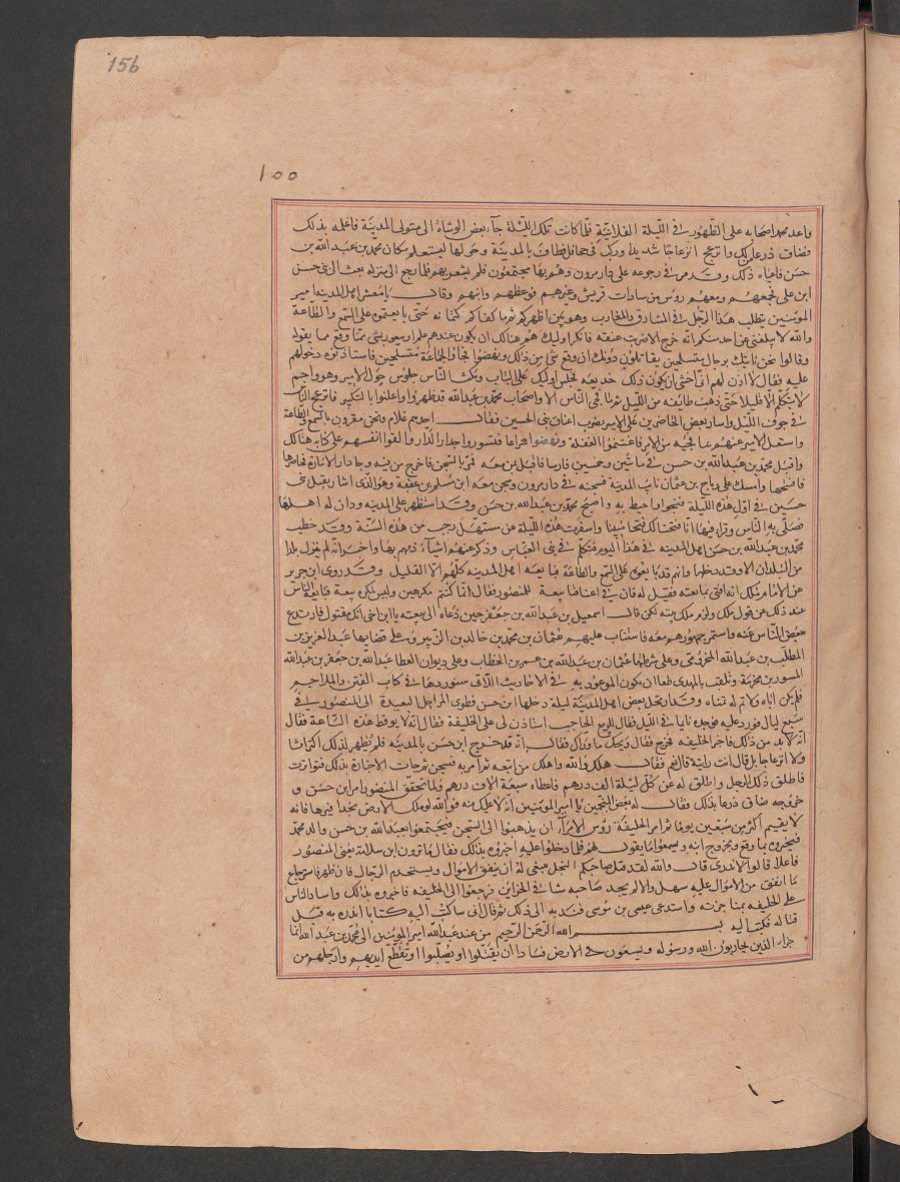 156
١٥٥
واعد محمد اصحابه على الظهور فى الليلة الفلانية فلما كانت تلك الليلة جاء بعض الوشاة الى متولى المدينة فاعلمه بذلك
فضاق ذرعا بذلك وانزعج انزعاجا شديدا وركب فى جحافل فطاف بالمدينة وحولها ليستعلم مكان محمد بن عبد الله بن
حسن فاعياه ذلك وقد مر فى رجوعه على دار مروان وهم بها مجتمعون فلم يشعر بهم فلما رجع الى منزله بعث الى بنى حسين
ابن على فجمعهم ومعهم رؤس من سادات قريش وغيرهم فوعظهم وانبهم وقال يا معشر اهل المدينه امير
المؤمنين يتطلب هذا الرجل فى المشارق والمغارب وهو بين اظهركم ثم ما كفاكم كتمانه حتى بايعتموه على السمع والطاعة
والله لا يبلغنى عن احد منكم انه خرج الا ضربت عنقه فانكر اوليك هم هنالك ان يكون عندهم علم او شعور بشى مما وقع مما يقوله
وقالوا نحن ناتيك برجال متسلحين يقاتلون دونك ان وقع شى من ذلك ونهضوا فجاؤا بجماعة متسلحين فاستاذنوه دخولهم
عليه فقال لا اذن لهم انى اخشى ان يكون ذلك خديعه فجلس اوليك على الباب ومكث الناس جلوس حول الامير وهو واجم
لا يتكلم الا قليلا حتى ذهبت طايفه من الليل ثم ما فجئ الناس الا واصحاب محمد بن عبد الله قد ظهروا واعلنوا بالتكبير فانزعج الناس
فى جوف الليل واشار بعض الحاضرين على الامير بضرب اعناق بنى الحسين فقال احدهم علام ونحن مقرون بالسمع والطاعة
واشتغل الامير عنهم بما فجيه من الامر فاغتنموا الغفلة ونهضوا سراعا فتسوروا جدار الدار والقوا انفسهم على كناسه هنالك
واقبل محمد بن عبد الله بن حسن فى مائتين وخمسين فارسا فاقبل بمن معه فمر بالسجن فاخرج من فيه وجا دار الامارة فحاصرها
فافتتحها وامسك على رياح بن عثمان نايب المدينة فسجنه فى دار مروان وسجن معه ابن مسلم بن عقبة وهو الذى اشار بقتل بنى
حسين فى اول هذه الليلة فنجوا واحيط به واصبح محمد بن عبد الله بن حسن وقد استظهر على المدينه ودان له اهلها
فصلى بالناس وقرا فيها انا فتحنا لك فتحا مبينا واسفرت هذه الليلة عن مستهل رجب من هذه السنة وقد خطب
محمد بن عبد الله بن حسن اهل المدينه فى هذا اليوم فتكلم فى بنى العباس وذكر عنهم اشياء ذمهم بها واخبر انه لم ينزل بلدا
من البلدان الا وقد دخلها وانهم قد بايعوه على السمع والطاعة فبايعه اهل المدينه كلهم الا القليل وقد روى ابن جرير
عن الامام مالك انه افتى بمبايعته فقيل له فان فى اعناقنا بيعة للمنصور فقال انما كنتم مكرهين وليس لمكره بيعة فبايعه الناس
عند ذلك عن قول مالك ولزم مالك بيته لكن قال اسمعيل بن عبد الله بن جعفر حين دعاه الى بيعته يا ابن اخى انك مقتول فارتدع
بعض الناس عنه واستمر جمهورهم معه فاستناب عليهم عثمان بن محمد بن خالد بن الزبير وعلى قضايها عبد العزيز بن
المطلب بن عبد الله المخزومى وعلى شرطتها عثمان بن عبد الله بن عمر بن الخطاب وعلى ديوان العطا عبد الله بن جعفر بن عبد الله
المسور بن مخرمة وتلقب بالمهدى طمعا ان يكون الموعود به فى الاحاديث اللاتى سنوردها فى كتاب الفتن والملاحم
فلم يكن اياه ولا تم له تمناه وقد ارتحل بعض اهل المدينة ليلة دخلها ابن حسن فطوى المراحل البعيدة الى المنصور فى
سبع ليال فورد عليه فوجده نايما فى الليل فقال للربيع الحاجب استاذن لى على الخليفة فقال انه لا يوقظ هذه الساعة فقال
انه لا بد من ذلك فاخبر الخليفه فخرج فقال ويحك ما وراك فقال انه قد خرج ابن حسن بالمدينه فلم يظهر لذلك اكتراثا
ولا انزعاجا بل قال انت رايته قال نعم فقال هلك والله واهلك من اتبعه ثم امر به فسجن ثم جات الاخبار بذلك فتواترت
فاطلق ذلك الرجل واطلق له عن كل ليلة الف درهم فاعطاه سبعة الاف درهم ولما تحقق المنصور امر ابن حسن و
خروجه ضاق ذرعا بذلك فقال له بعض المنجمين يا امير المؤمنين انه لا عليك منه فوالله لو ملك الارض بحذافيرها فانه
لا يقيم اكثر من سبعين يوما ثم امر الخليفة رؤس الامراء ان يذهبوا الى السجن فيجتمعوا بعبد الله بن حسن والد محمد
فيخبروه بما وقع وبخروج ابنه ويسمعوا ما يقول لهم فلما دخلوا عليه اخبروه بذلك فقال ما ترون ابن سلامة يعنى المنصور
فاعلا قالوا لا ندرى قال والله لقد قتل صاحبكم البخل ينبغى له ان ينفق الاموال ويستخدم الرجال فان ظهر فاسترجاع
ما انفق من الاموال عليه سهل والا لم يجد صاحبه شيا فى الخزاين فرجعوا الى الخليفه فاخبروه بذلك واشار الناس
على الخليفه بمناجزته واستدعى عيسى بن موسى فندبه الى ذلك ثم قال انى ساكتب اليه كتابا انذره به قبل
قتاله فكتب اليه بسم الله الرحمن الرحيم من عند عبد الله امير المؤمنين الى محمد بن عبد الله انما
جزاء الذين يحاربون الله ورسوله ويسعون فى الارض فسادا ان يقتلوا او يصلبوا او تقطع ايديهم وارجلهم من